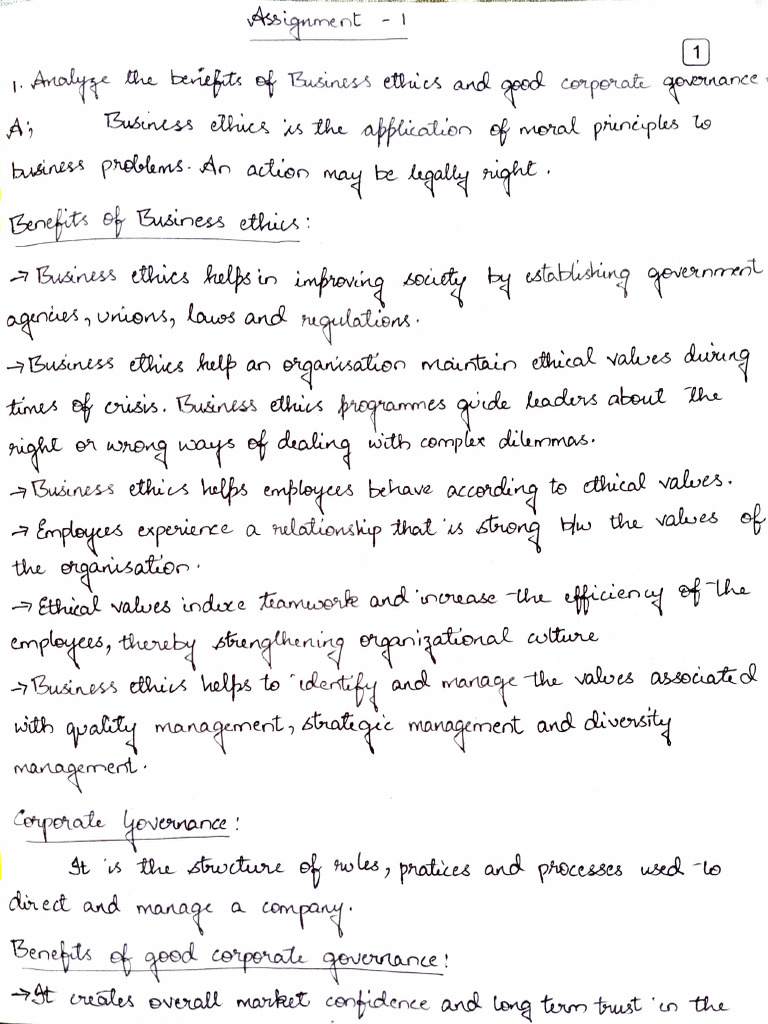 Assignment - 1
1
1. Analyze the benefits of Business ethics and good corporate governance.
A; Business ethics is the application of moral principles to
business problems. An action may be legally right.
Benefits of Business ethics:
→ Business ethics helps in improving society by establishing government
agencies, unions, laws and regulations.
→ Business ethics help an organisation maintain ethical values during
times of crisis. Business ethics programmes guide leaders about the
right or wrong ways of dealing with complex dilemmas.
→ Business ethics helps employees behave according to ethical values.
→ Employees experience a relationship that is strong b/w the values of
the organisation.
→ Ethical values induce teamwork and increase the efficiency of the
employees, thereby strengthening organizational culture
→ Business ethics helps to identify and manage the values associated
with quality management, strategic management and diversity
management.
Corporate Governance:
It is the structure of rules, pratices and processes used to
direct and manage a company.
Benefits of good corporate governance:
→ It creates overall market confidence and long term trust in the